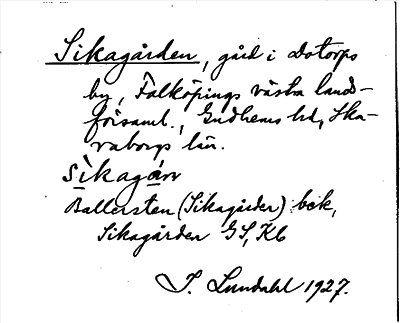 Sikagården, gård i Dotorps
by, Falköpings västra lands-
församl., Gudhems hd, Ska-
raborgs län.
Sikagárn
Ballersten (Sikagården) bek,
Sikagården GS, Kb
I. Lundahl 1927.